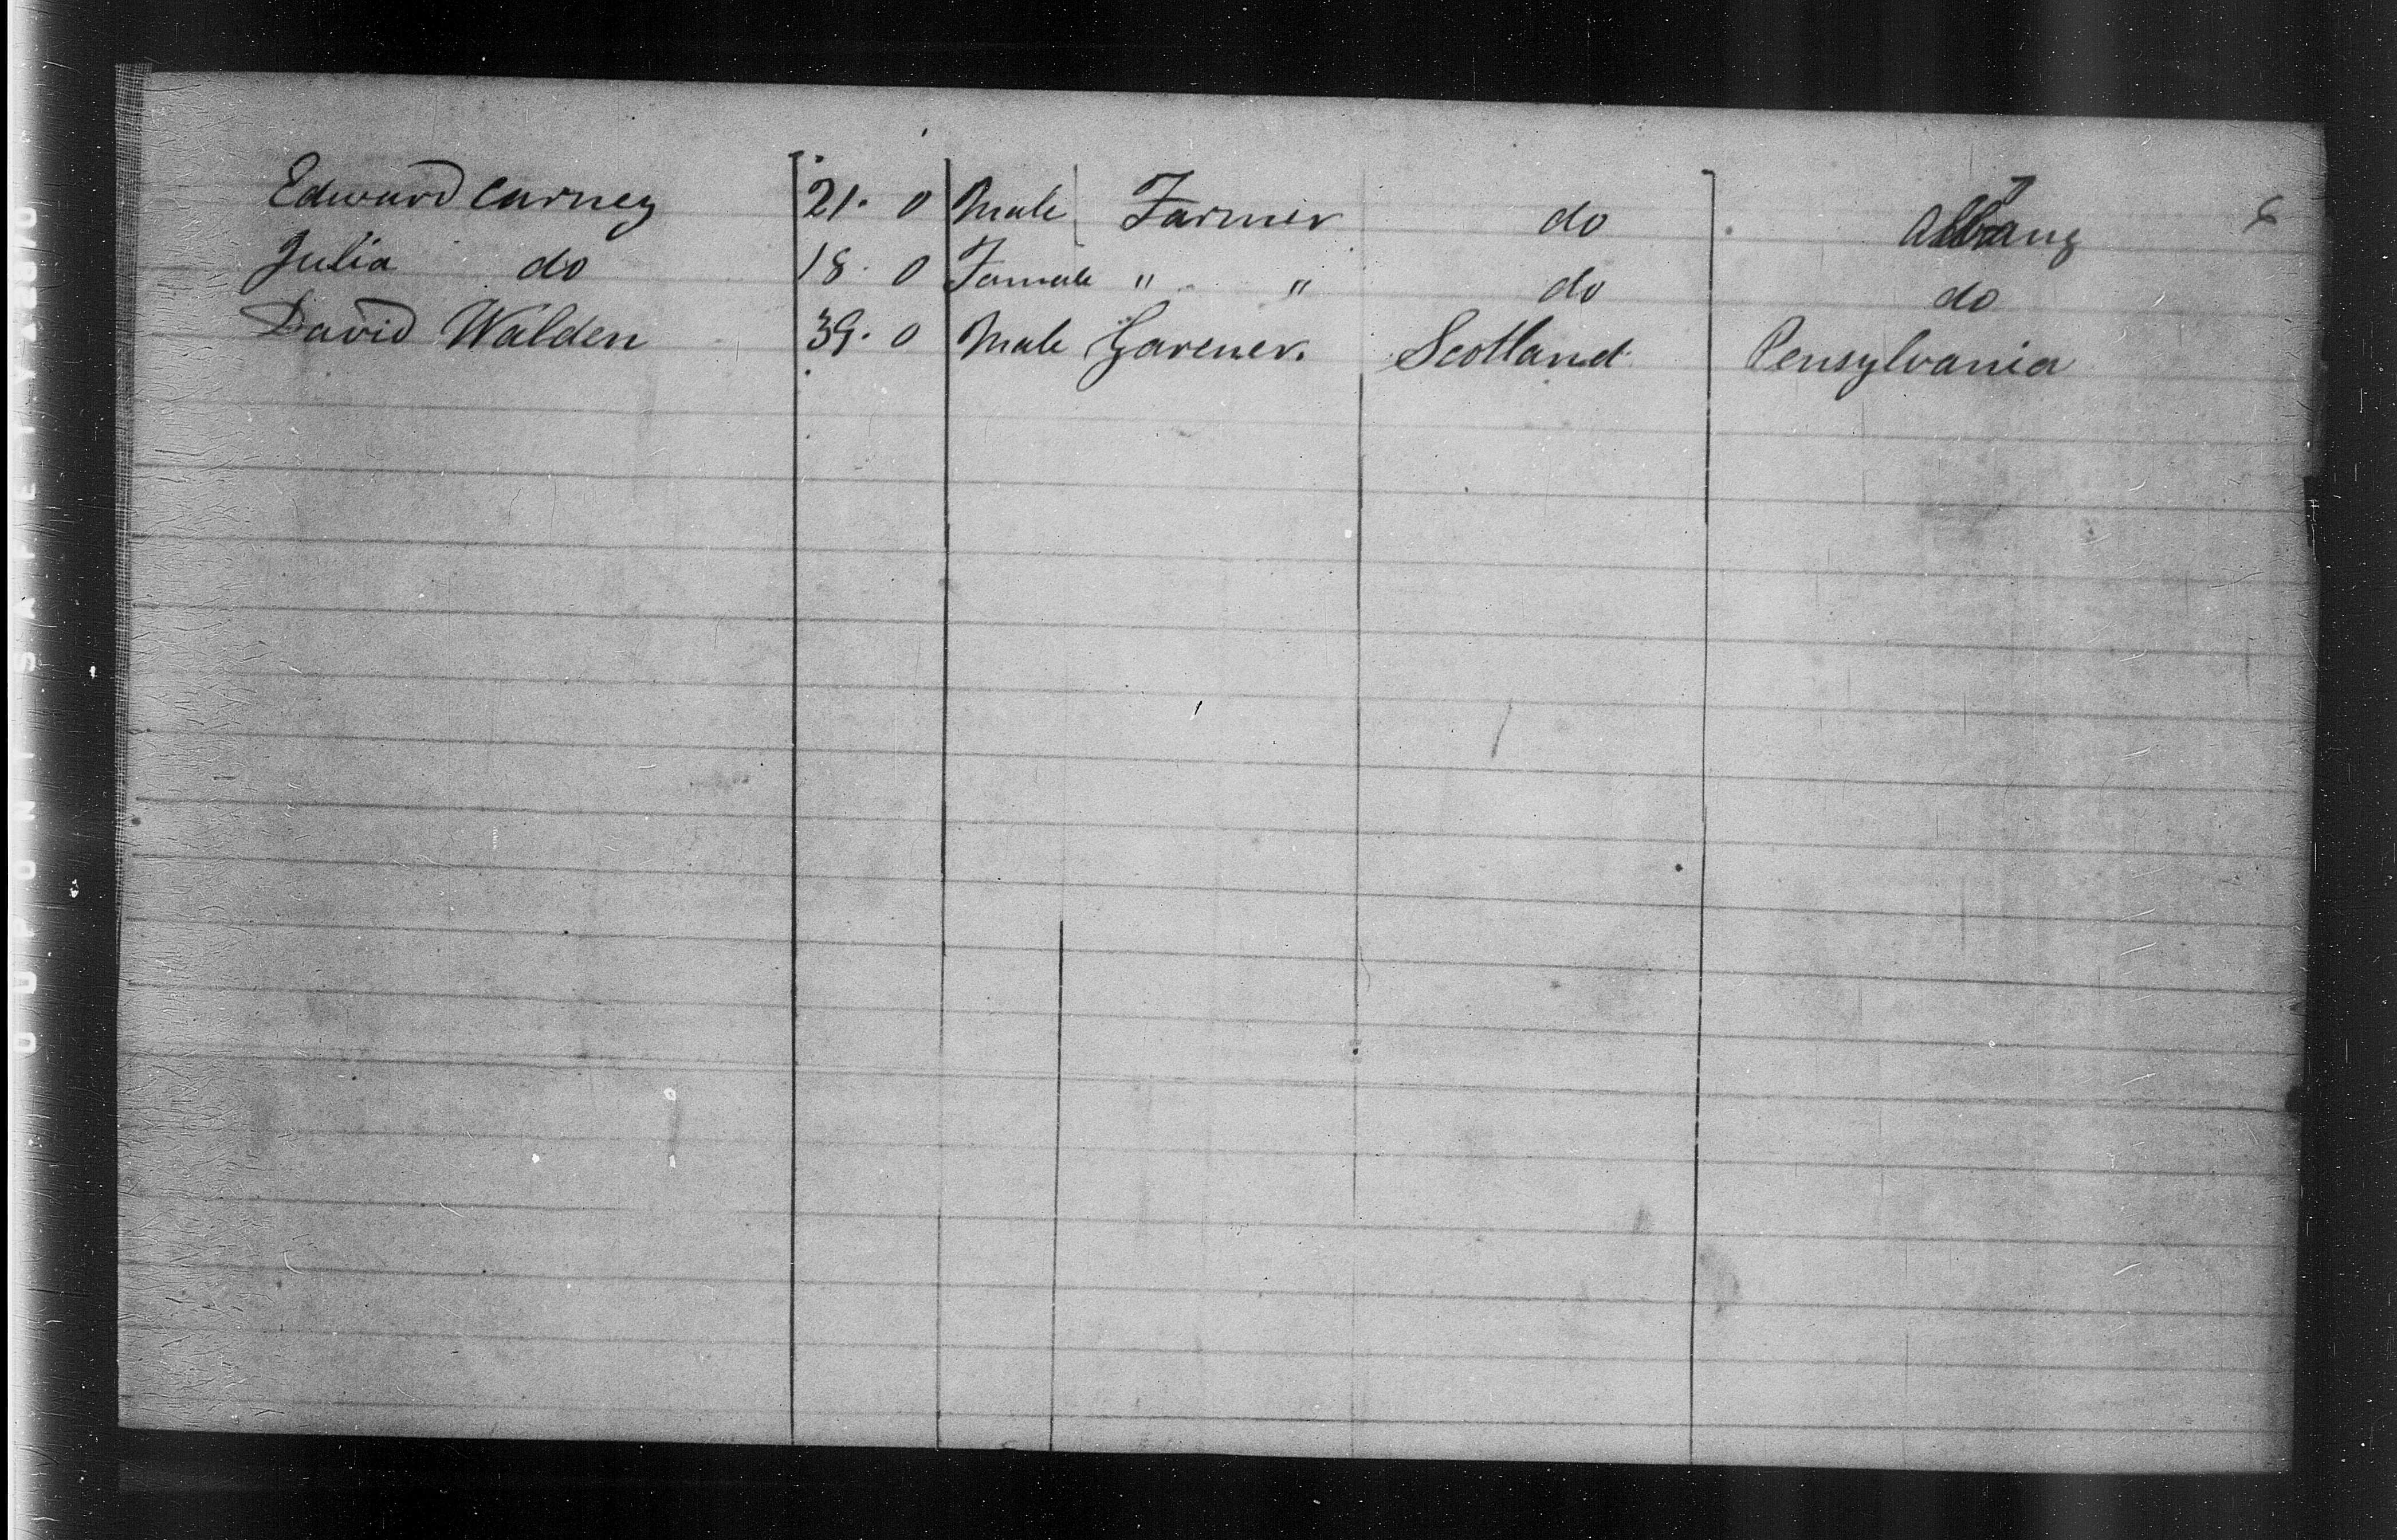 Edward Carney 21. 0 Male Farmer do Albany
Julia do 18. 0 Famale " " do do
David Walden 39. 0 Male Garener. Scotland Pensylvania